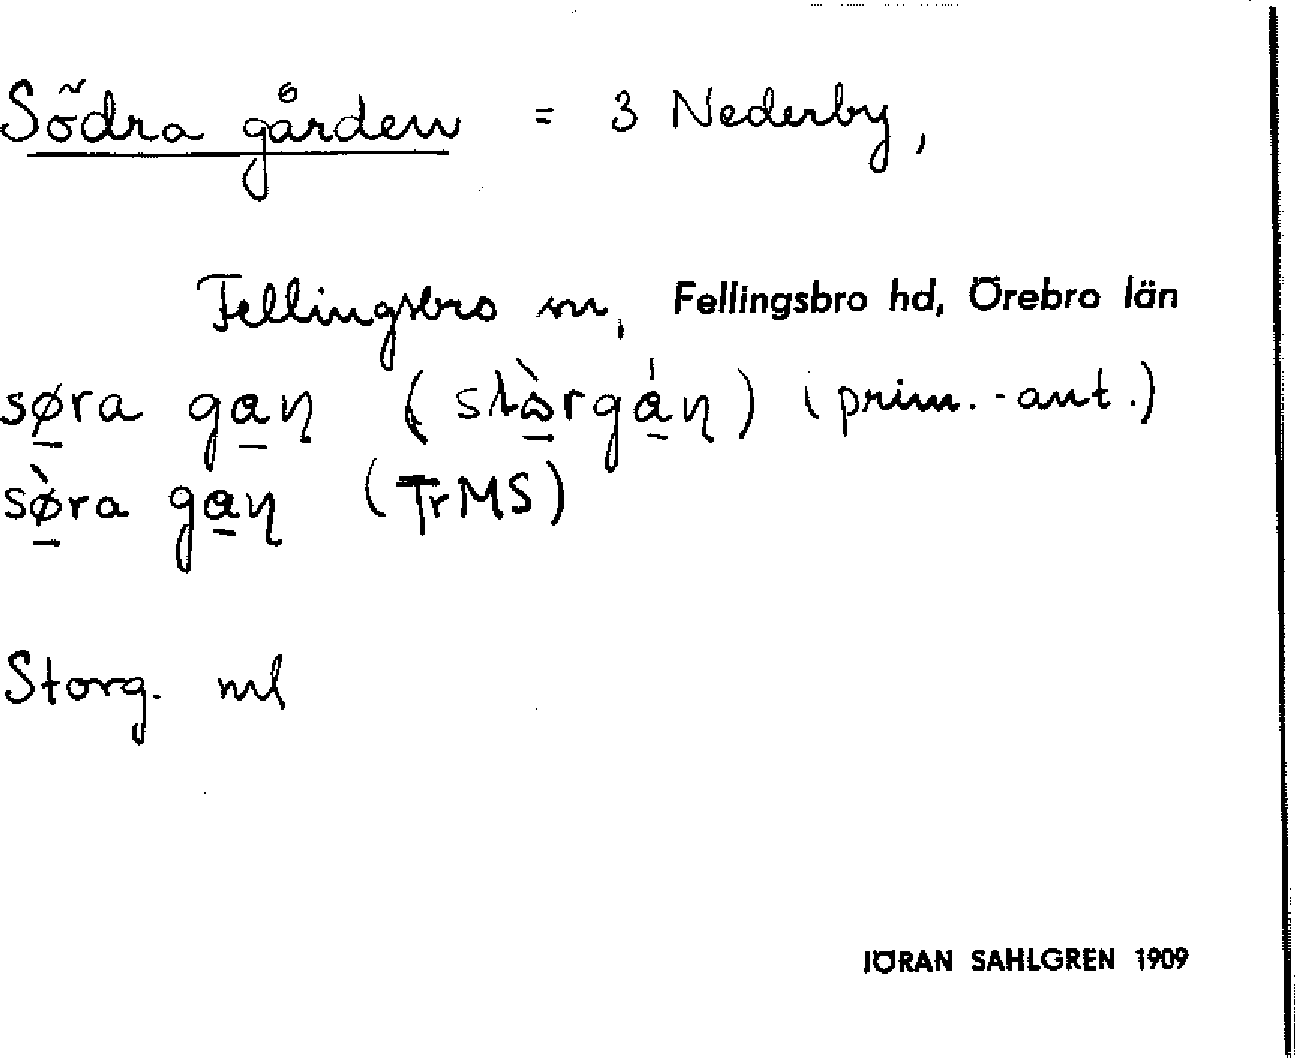 Södra gården = 3 Nederby,
Fellingsbro sn, Fellingsbro hd, Örebro län
søra gaɳ (stòrgáɳ) (prim.-ant.)
sø̀ra gaɳ (TrMS)
Storg. ml
JÖRAN SAHLGREN 1909